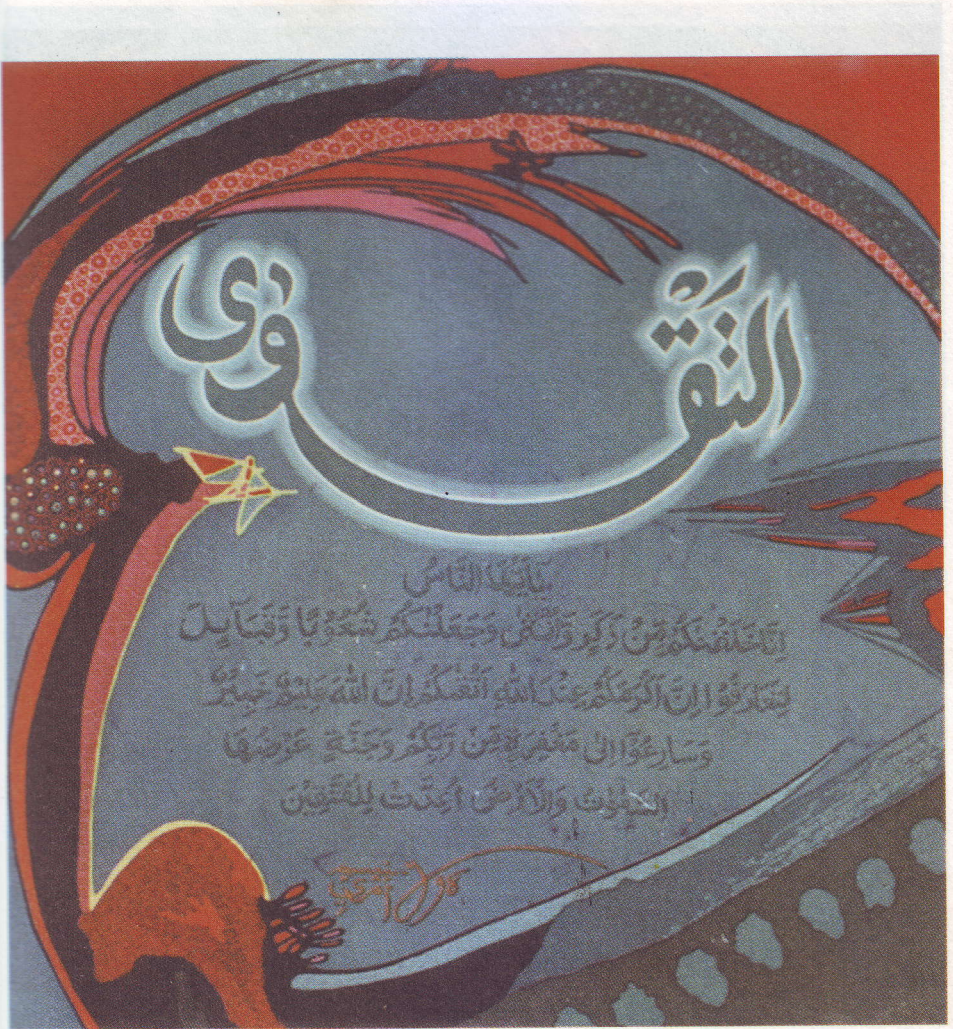 التقوى
يٰٓاَيُّهَا النَّاسُ
اِنَّا خَلَقْنٰكُمْ مِّنْ ذَكَرٍ وَّاُنْثٰى وَجَعَلْنٰكُمْ شُعُوْبًا وَّقَبَآىِٕلَ
لِتَعَارَفُوْا اِنَّ اَكْرَمَكُمْ عِنْدَ اللّٰهِ اَتْقٰىكُمْ اِنَّ اللّٰهَ عَلِيْمٌ خَبِيْرٌ
وَسَارِعُوْٓا اِلٰى مَغْفِرَةٍ مِّنْ رَّبِّكُمْ وَجَنَّةٍ عَرْضُهَا
السَّمٰوٰتُ وَالْاَرْضُ اُعِدَّتْ لِلْمُتَّقِيْنَ